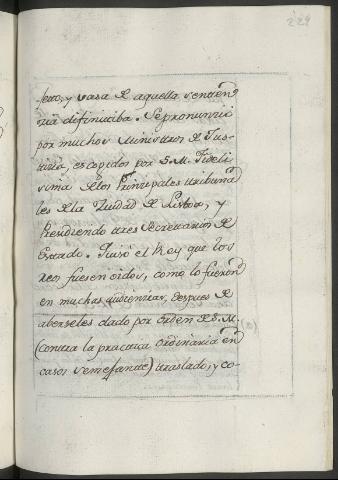 229
feto, y vasa de aquella senten
zia difinitiba. Se pronunzió
por muchos Ministros de Jus-
tizia, escojidos por S.M. Fideli
sima de los Principales tribuna
les de la Ziudad de Lisboa, y
Presidiendo tres Secretarios de
Estado. Quiso el Rey que los
reos fuesen oidos, como lo fueron
en muchas audienzias, despues de
aberseles dado por orden de S.M.
(contra la practica ordinaria en
casos semejantes) traslado, y co-